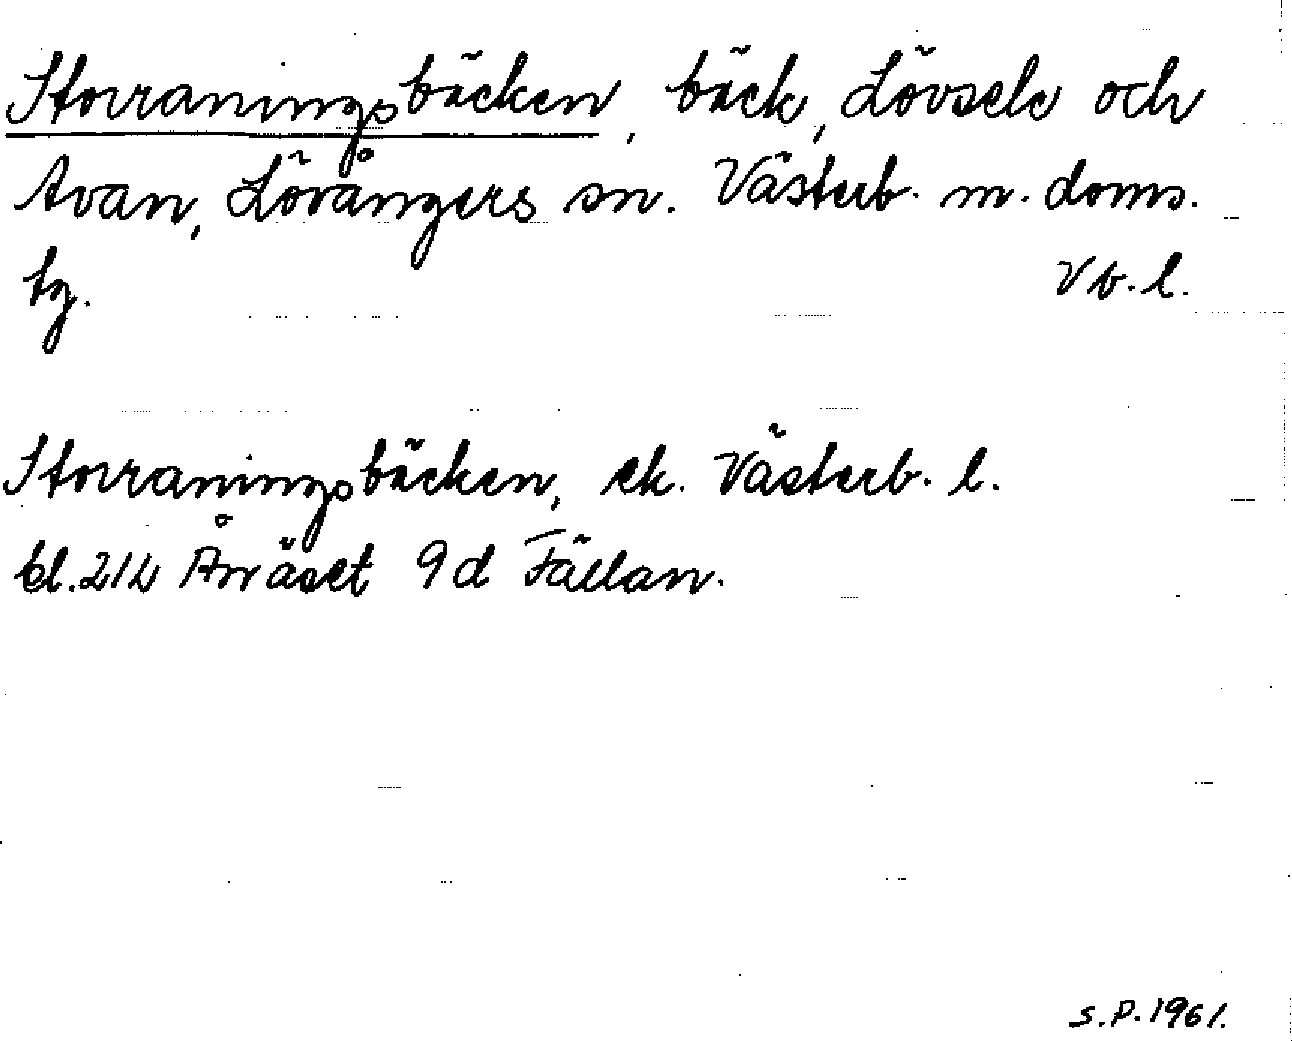 Storraningsbäcken, bäck, Lövsele och
Avan, Lövångers sn. Västerb. m. doms.
tg. Vb. l.
Storraningsbäcken, ek. Västerb. l.
bl. 21L Ånäset 9d Fällan.
S.P. 1961.